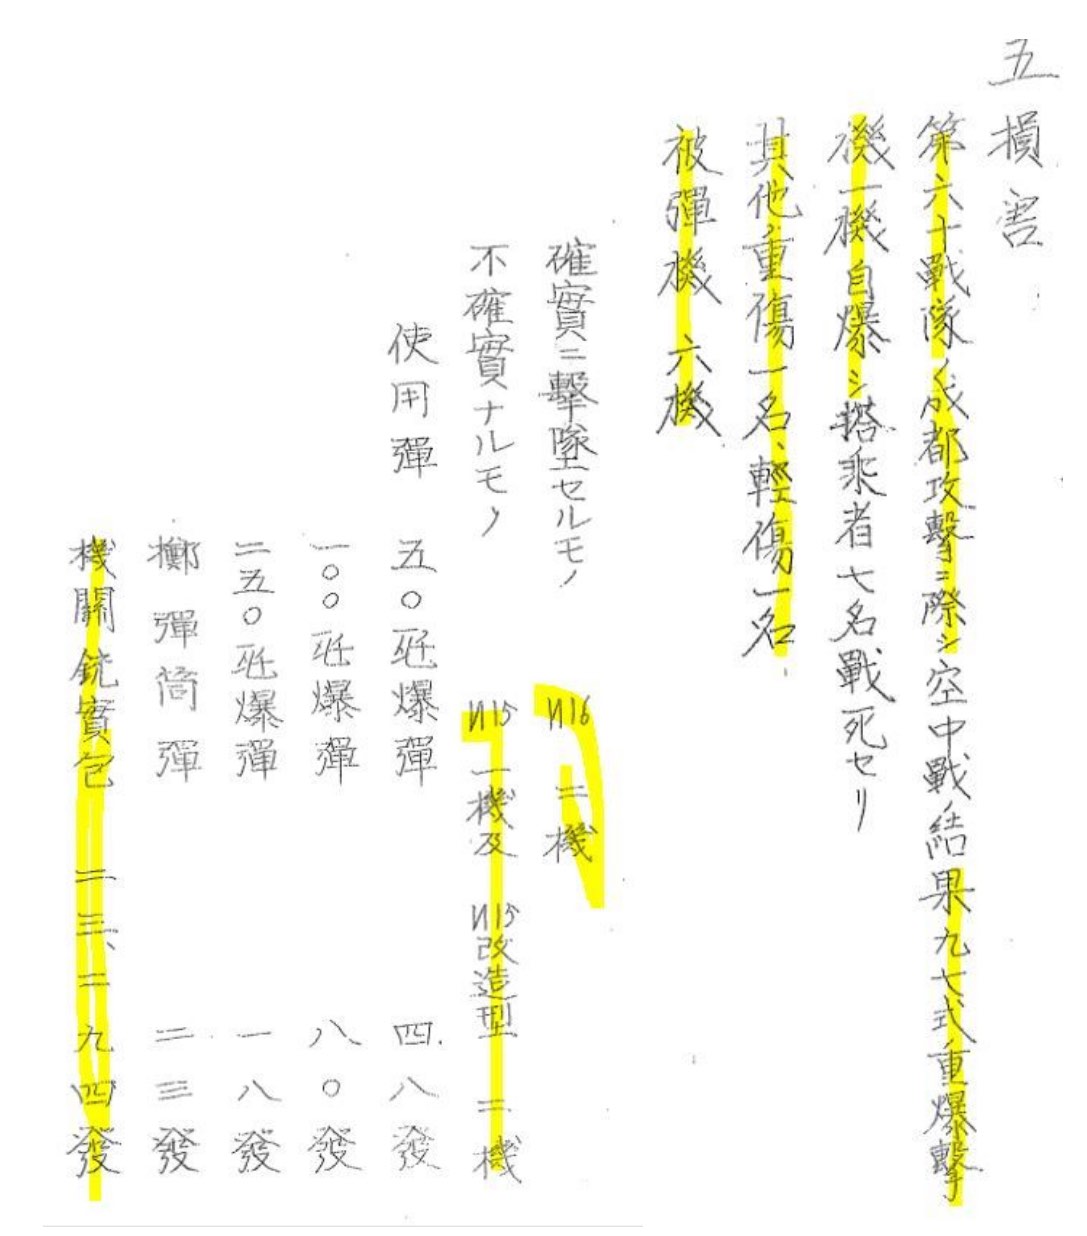 五 損害
第六十戰隊ノ成都攻擊ニ際シ空中戰ノ結果九七式重爆擊
機一機自爆シ搭乘者七名戰死セリ
其他ノ重傷一名、輕傷一名
被彈機 六機
確實ニ擊墜セルモノ И16 二機
不確實ナルモノ И15 一機及 И15改造型 二機
使用彈 五〇瓩爆彈 四八發
一〇〇瓩爆彈 八〇發
二五〇瓩爆彈 一八發
擲彈筒彈 二三發
機關銃實包 二三、二九四發